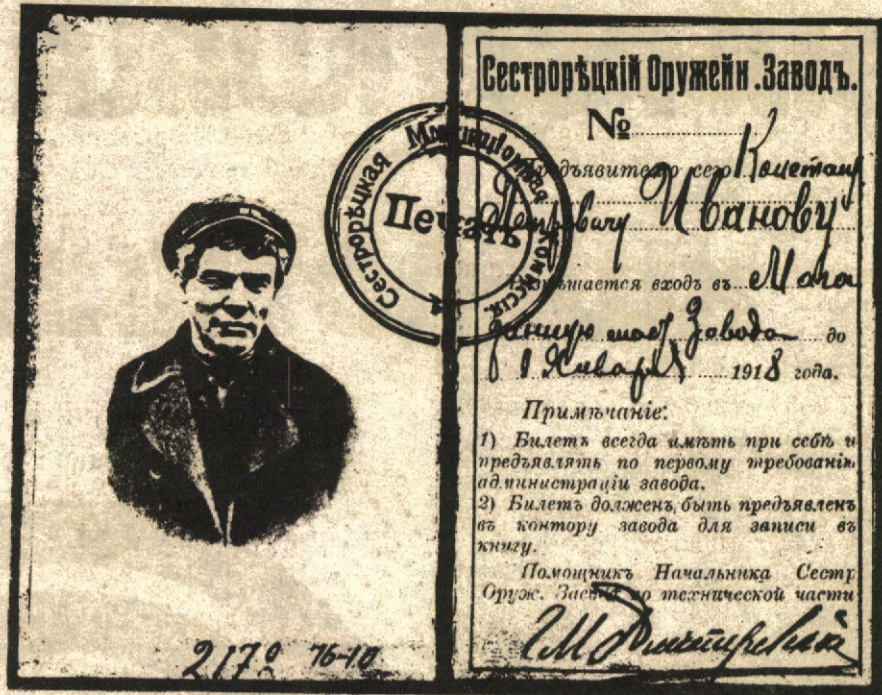 Сестрорѣцкій Оружейн. Заводъ.
№
Предъявителю сего Констант
Петровичу Иванову
Разрѣшается входъ въ Мага
завода до
1 Января 1918 года.
Примѣчаніе:
1) Билетъ всегда имѣть при себѣ и
предъявлять по первому требованію
администраціи завода.
2) Билетъ долженъ быть предъявленъ
въ контору завода для записи въ
книгу.
Помощникъ Начальника Сестр
Оруж. Завода по технической части
Сестрорѣцкая комиссія.
Печать
2170 76-10